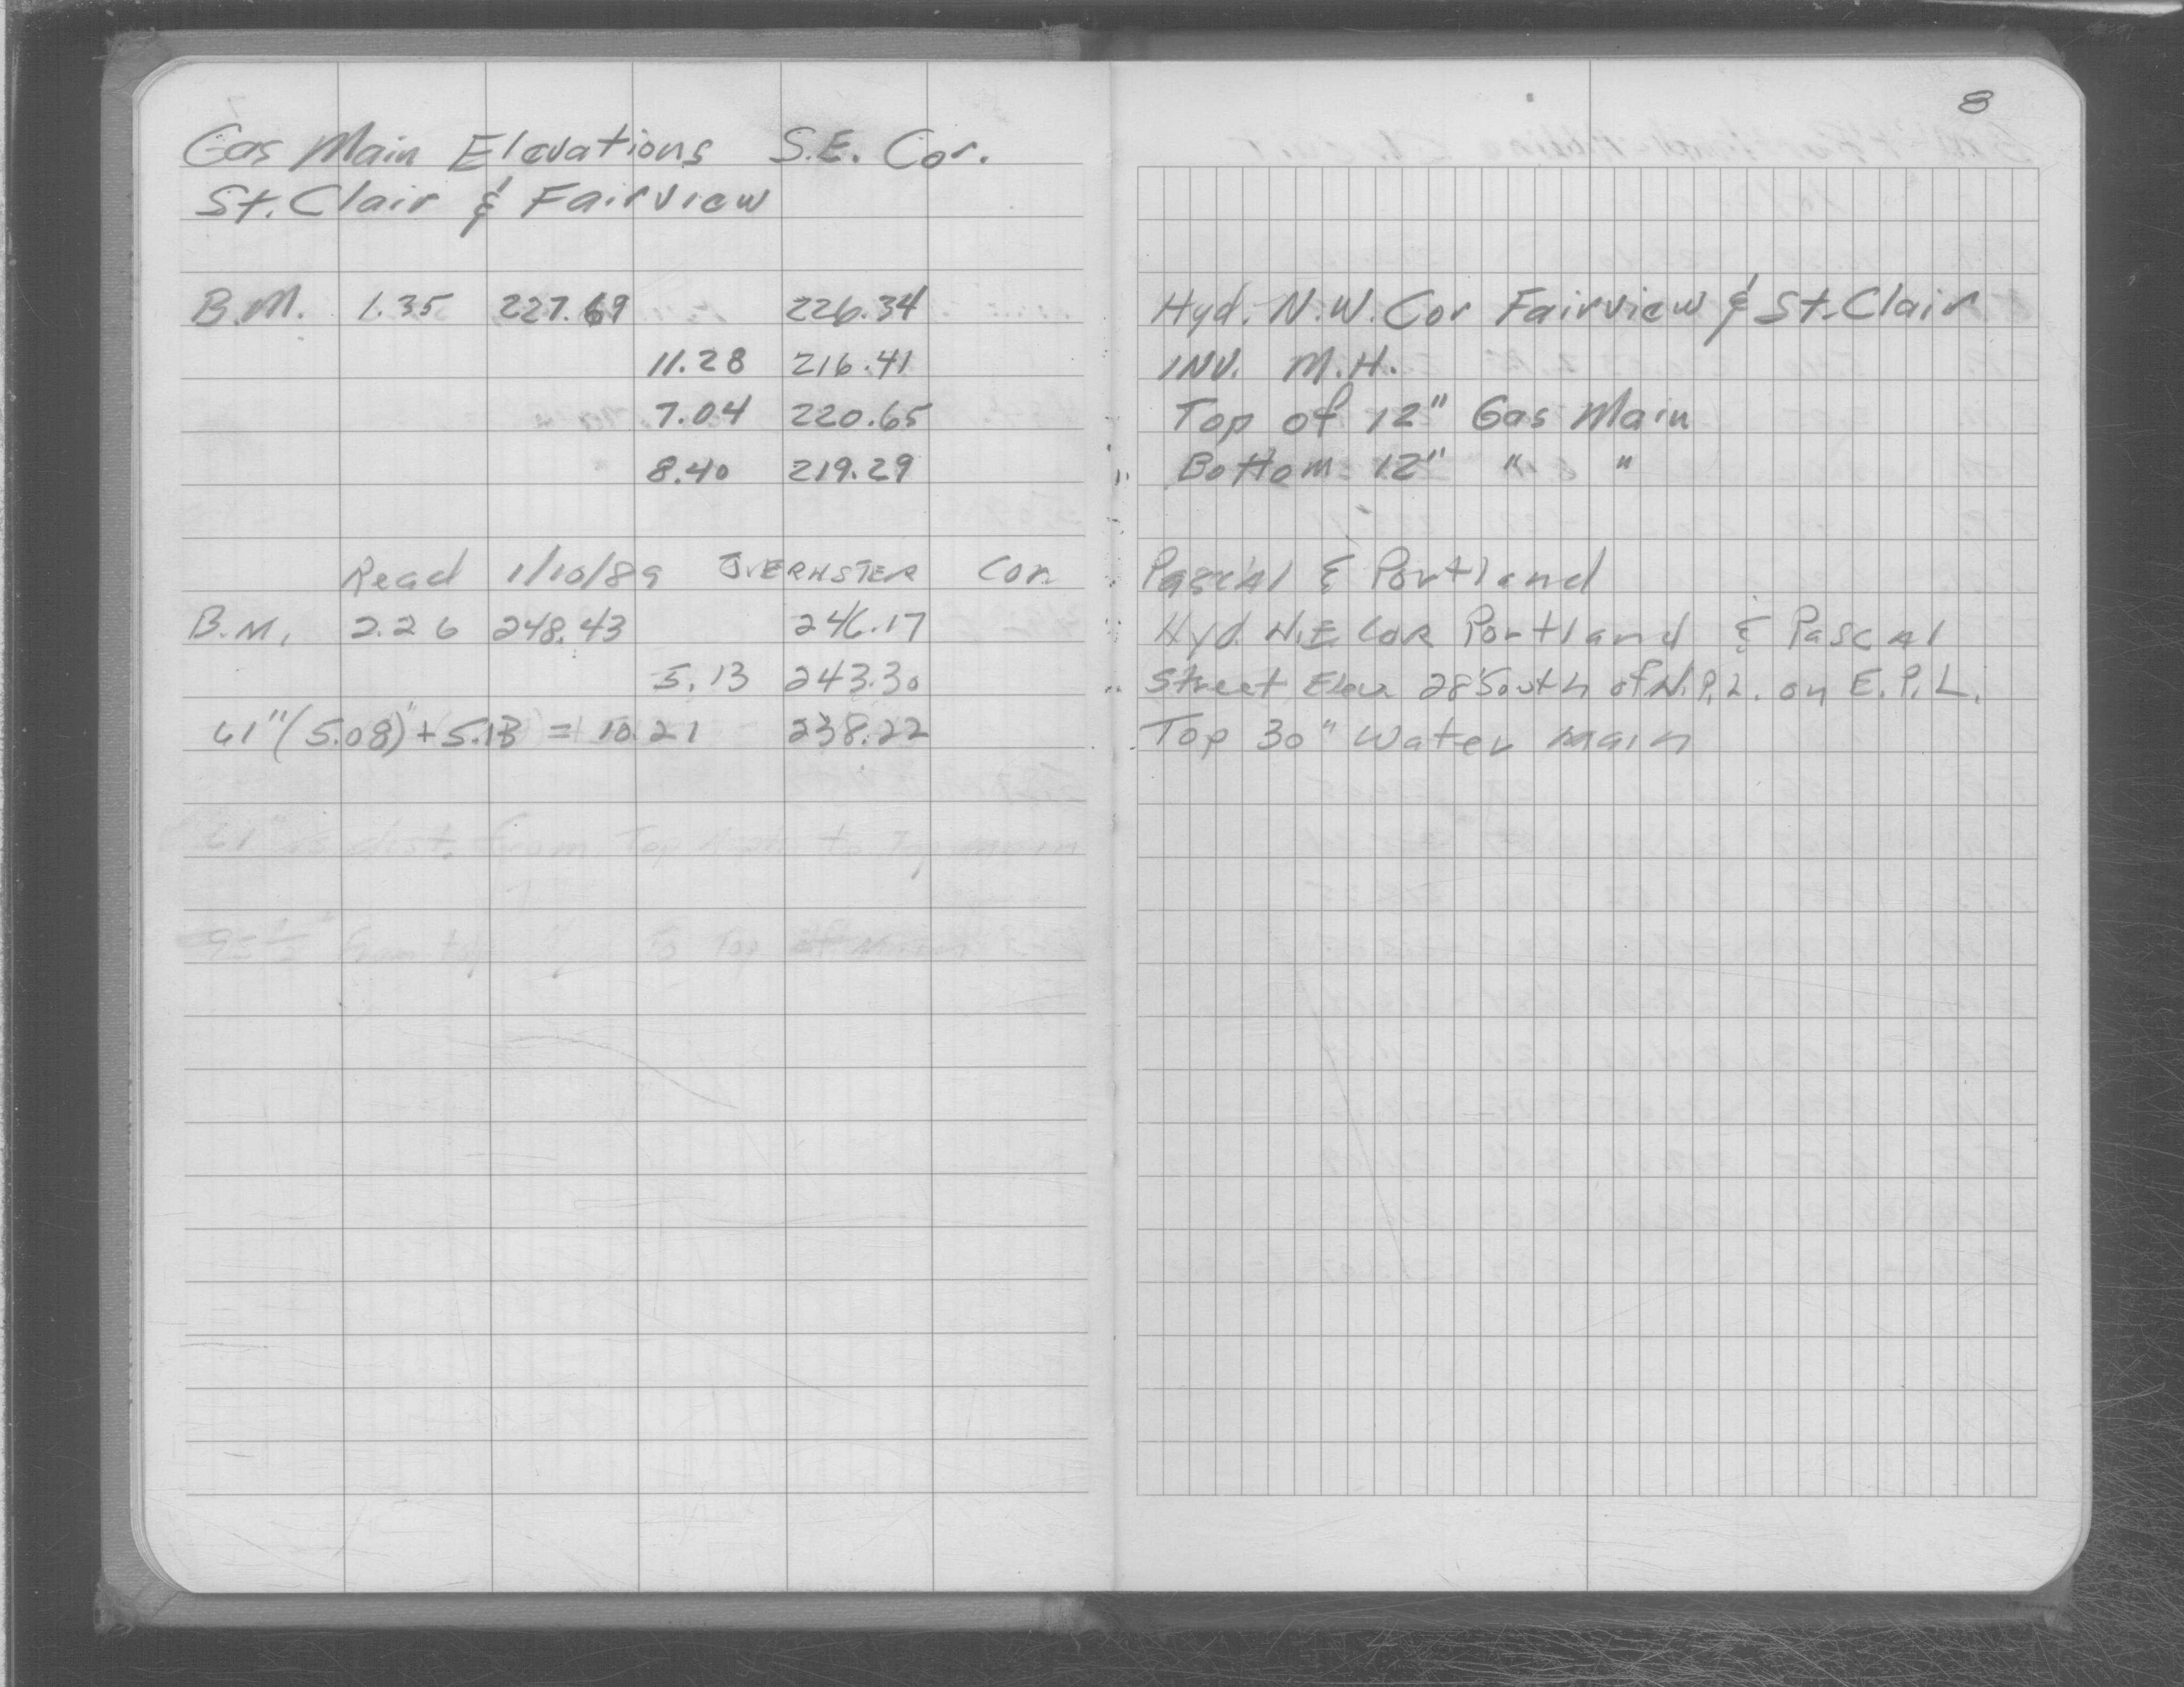 8
Gas Main Elevations S.E. Cor.
St. Clair & Fairview
B.M. 1.35 227.69 226.34 Hyd. N.W. Cor Fairview & St. Clair
11.28 216.41 INV. M.H.
7.04 220.65 Top of 12" Gas Main
8.40 219.29 Bottom 12" " "
Read 1/10/89 Cor. Pascal & Portland
B.M. 2.26 248.43 246.17 Hyd. N.E. COR Portland & Pascal
5.13 243.30 Street Elev 28' South of N.P.L. on E.P.L.
61" (5.08) + 5.13 = 10.21 238.22 Top 30" Water main
61" dist. from Top to Top main
from top to Top of Main